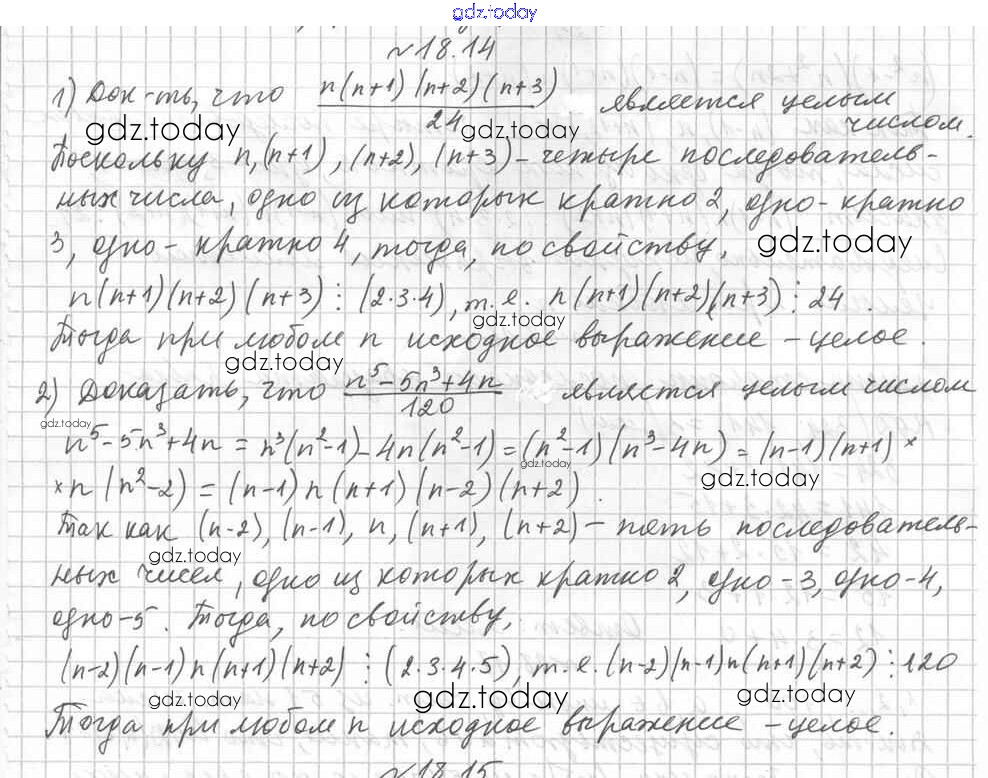 gdz.today
№18.14
1) Док-ть, что n(n+1)(n+2)(n+3)/24 является целым
числом.
gdz.today gdz.today
Поскольку n, (n+1), (n+2), (n+3) – четыре последователь-
ных числа, одно из которых кратно 2, одно - кратно
3, одно - кратно 4, тогда, по свойству,
gdz.today
n(n+1)(n+2)(n+3) ⋮ (2·3·4), т.е. n(n+1)(n+2)(n+3) ⋮ 24.
gdz.today
Тогда при любом n исходное выражение – целое.
gdz.today
2) Доказать, что n⁵-5n³+4n/120 является целым числом
gdz.today
n⁵-5n³+4n = n³(n²-1)-4n(n²-1) = (n²-1)(n³-4n) = (n-1)(n+1)×
gdz.today gdz.today
×n(n²-2) = (n-1)n(n+1)(n-2)(n+2).
Так как (n-2), (n-1), n, (n+1), (n+2) – пять последователь-
gdz.today
ных чисел, одно из которых кратно 2, одно -3, одно -4,
одно -5. Тогда, по свойству,
(n-2)(n-1)n(n+1)(n+2) ⋮ (2·3·4·5), т.е. (n-2)(n-1)n(n+1)(n+2) ⋮ 120
gdz.today gdz.today gdz.today
Тогда при любом n исходное выражение – целое.
№18.15